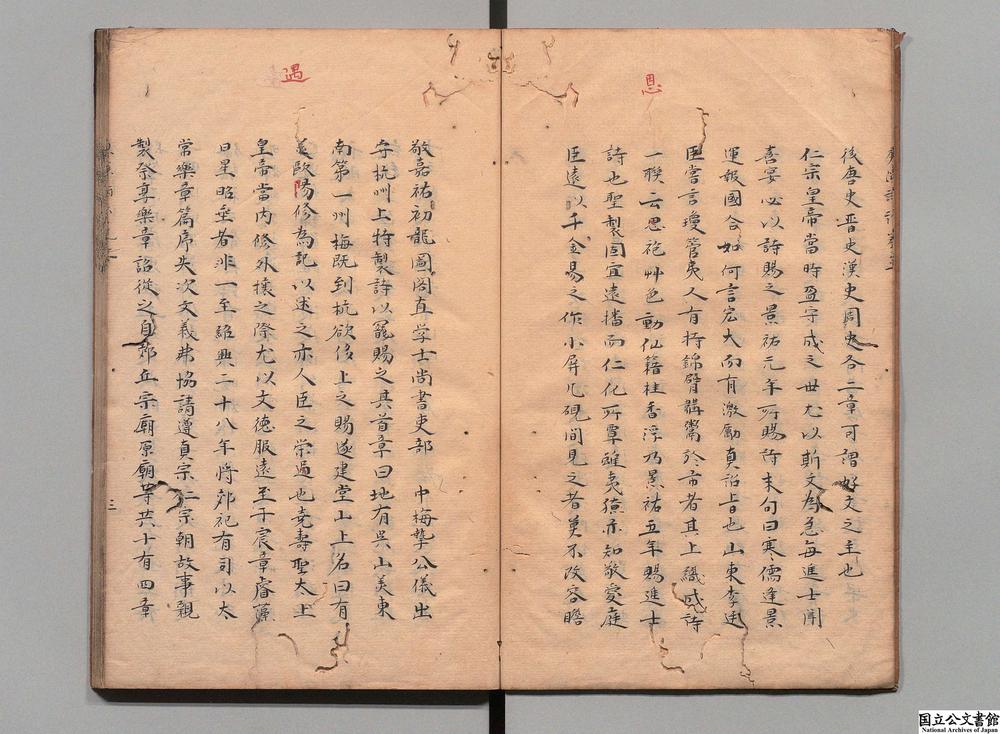 恩
後唐史晋史漢史周史各二章可謂好文之主也
仁宗皇帝當時盈守成之世尤以斯文為急每進士聞
喜宴必以詩賜之景祐元年所賜詩末句曰寒儒逢景
運報國合如何言宏大而有激勵真詔旨也山東李廷
臣嘗言瓊管夷人有持錦臂鞲鬻於市者其上織成詩
一聯云恩袍艸色動仙籍桂香浮乃景祐五年賜進士
詩也聖製固宜遠播而仁化所覃雖夷獠亦知敬愛庭
臣遠以千金易之作小屏几硯間見之者莫不改容瞻
遇
敬嘉祐初龍圖阁直学士尚書吏部 中梅摯公儀出
守杭州上特製詩以寵賜之其首章曰地有吳山美東
南第一州梅既到杭欲侈上之賜遂建堂山上名曰有
美歐陽修為記以述之亦人臣之荣遇也堯壽聖太上
皇帝當内修外攘之際尤以文德服遠至于宸章睿藻
日星昭垂者非一至紹興二十八年将郊祀有司以太
常樂章篇序失次文義弗協請遵真宗仁宗朝故事親
製祭享樂章詔從之自郊丘宗廟原廟等共十有四章
三
国立公文書館
National Archives of Japan